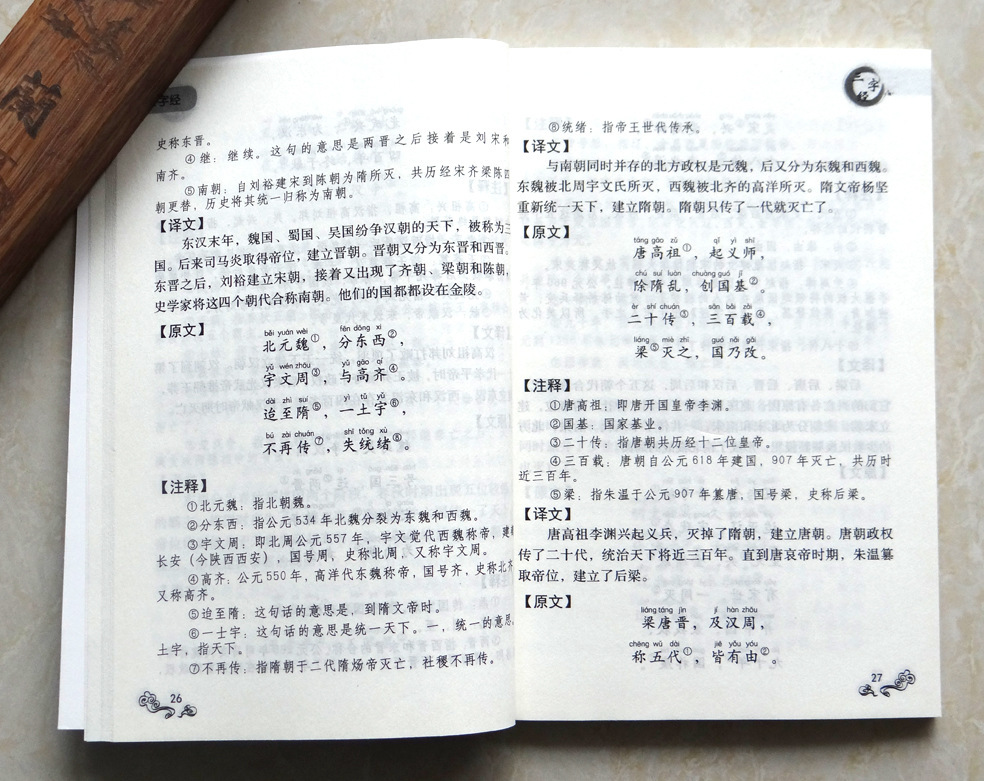 蘭
字经
史称东晋。
④继：继续。这句的意思是两晋之后接着是刘宋和
南齐。
⑤南朝：自刘裕建宋到陈朝为隋所灭，共历经宋齐梁陈四
朝更替，历史将其统一归称为南朝。
【译文】
东汉末年，魏国、蜀国、吴国纷争汉朝的天下，被称为三
国。后来司马炎取得帝位，建立晋朝。晋朝又分为东晋和西晋。
东晋之后，刘裕建立宋朝，接着又出现了齐朝、梁朝和陈朝，
史学家将这四个朝代合称南朝。他们的国都都设在金陵。
【原文】
běi yuán wèi fēn dōng xi
北元魏①，分东西②，
yǔ wén zhōu yǔ gāo qí
宇文周③，与高齐④。
dài zhì suí yì tǔ yǔ
迨至隋⑤，一土宇⑥，
bú zài chuán shī tǒng xù
不再传⑦，失统绪⑧。
【注释】
①北元魏：指北朝魏。
②分东西：指公元534年北魏分裂为东魏和西魏。
③宇文周：即北周公元557年，宇文觉代西魏称帝，建都
长安（今陕西西安），国号周，史称北周，又称宇文周。
④高齐：公元550年，高洋代东魏称帝，国号齐，史称北齐
又称高齐。
⑤迨至隋：这句话的意思是，到隋文帝时。
⑥一土宇：这句话的意思是统一天下。一，统一的意思
土宇，指天下。
⑦不再传：指隋朝于二代隋炀帝灭亡，社稷不再传。
26
三字经
⑧统绪：指帝王世代传承。
【译文】
与南朝同时并存的北方政权是元魏，后又分为东魏和西魏。
东魏被北周宇文氏所灭，西魏被北齐的高洋所灭。隋文帝杨坚
重新统一天下，建立隋朝。隋朝只传了一代就灭亡了。
【原文】
táng gāo zǔ qǐ yì shī
唐高祖①，起义师，
chú suí luàn chuàng guó jī
除隋乱，创国基②。
èr shí chuán sān bǎi zǎi
二十传③，三百载④，
liáng miè zhī guó nǎi gǎi
梁⑤灭之，国乃改。
【注释】
①唐高祖：即唐开国皇帝李渊。
②国基：国家基业。
③二十传：指唐朝共历经十二位皇帝。
④三百载：唐朝自公元618年建国，907年灭亡，共历时
近三百年。
⑤梁：指朱温于公元907年篡唐，国号梁，史称后梁。
【译文】
唐高祖李渊兴起义兵，灭掉了隋朝，建立唐朝。唐朝政权
传了二十代，统治天下将近三百年。直到唐哀帝时期，朱温篡
取帝位，建立了后梁。
【原文】
liáng táng jìn jí hàn zhōu
梁唐晋，及汉周，
chēng wǔ dài jiē yǒu yóu
称五代①，皆有由②。
27